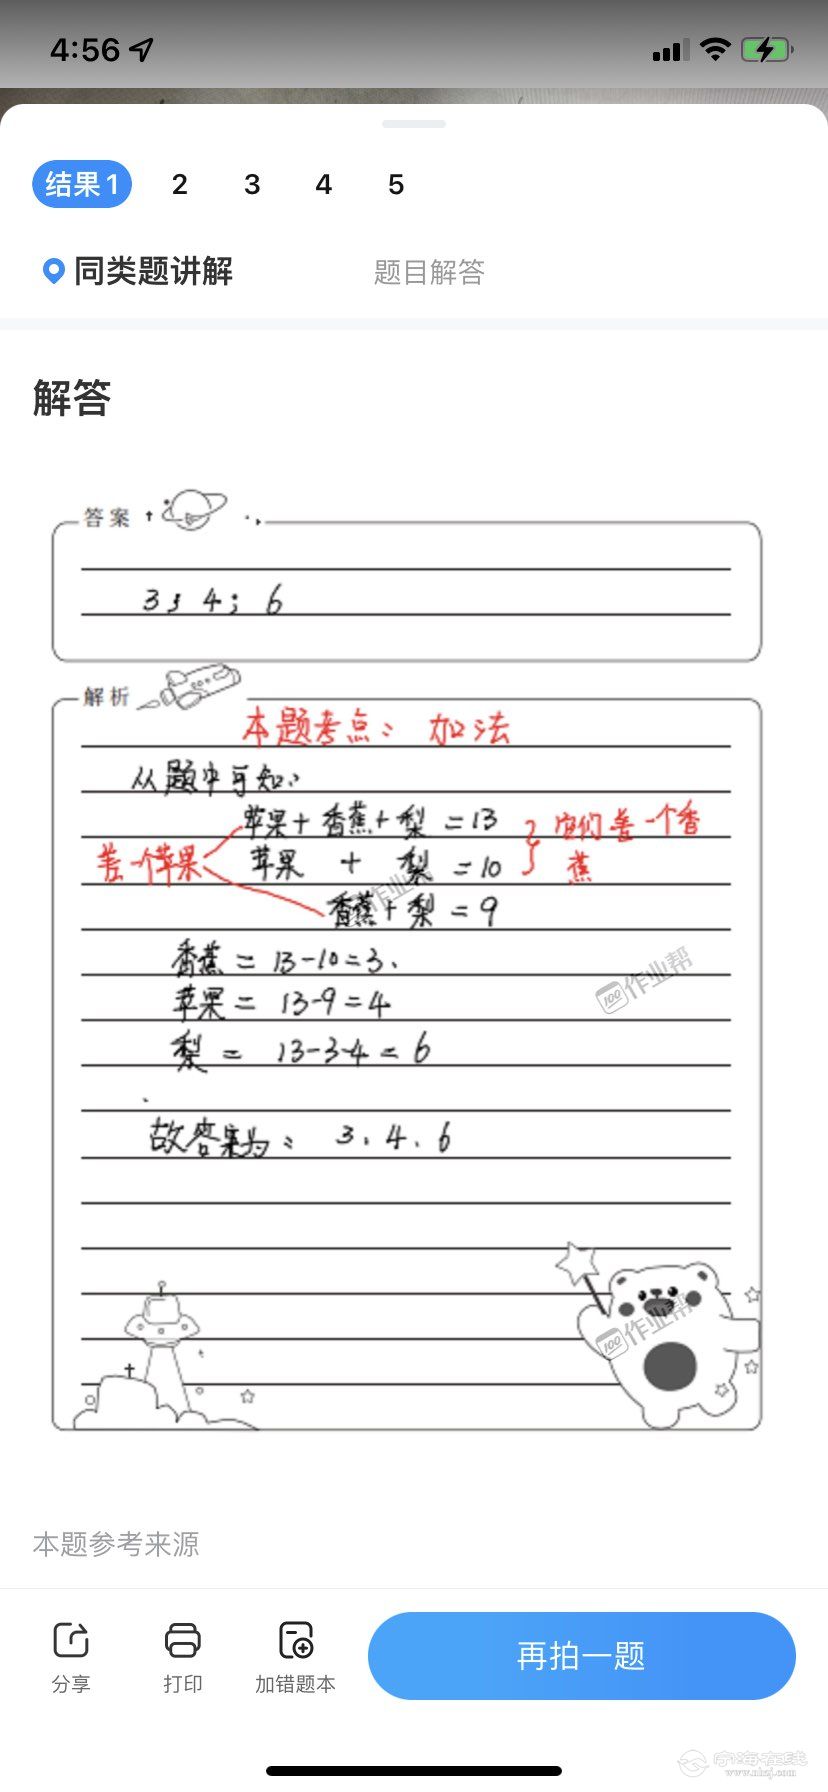 4:56
结果1 2 3 4 5
同类题讲解 题目解答
解答
答案
3; 4; 6
解析
本题考点: 加法
从题中可知:
苹果+香蕉+梨=13
苹果 + 梨 =10
香蕉+梨=9
差一个苹果
它们差一个香
蕉
香蕉=13-10=3.
苹果= 13-9=4
梨= 13-3-4=6
故答案为: 3.4.6
100作业帮
100作业帮
作业帮
本题参考来源
分享 打印 加错题本 再拍一题
宁海在线
www.nhzj.com